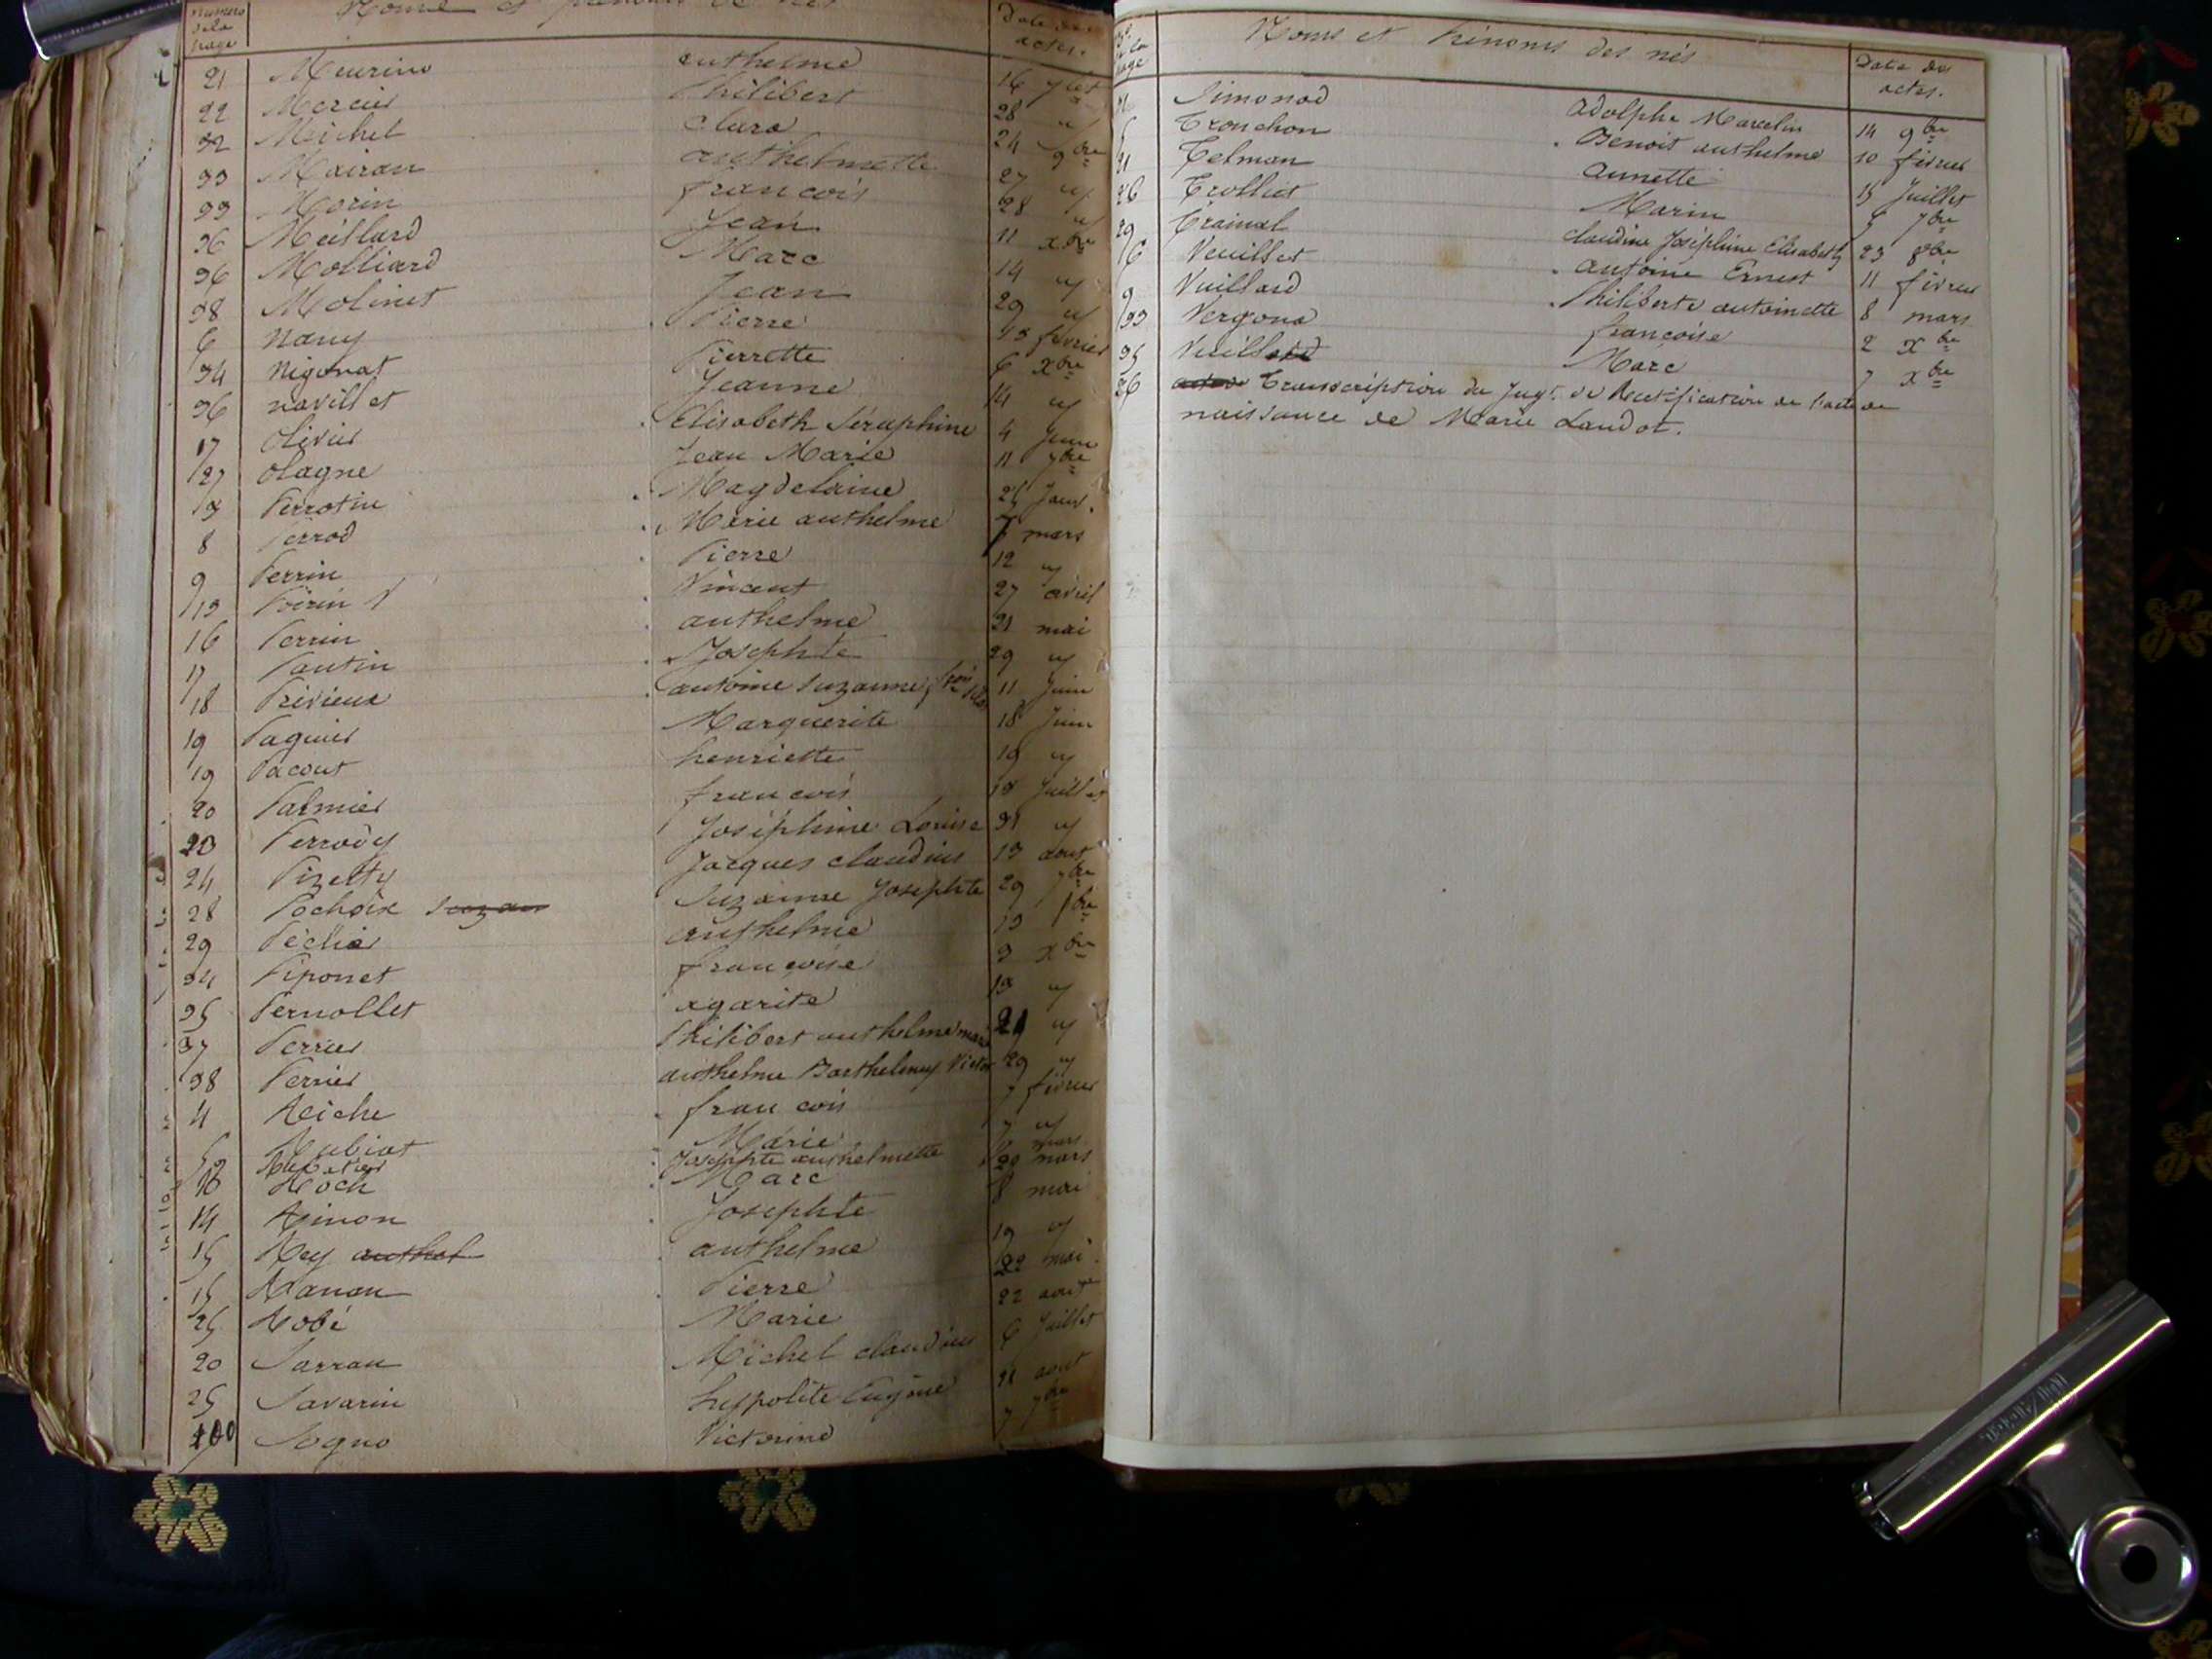 Numero de la page Noms et prénoms de nés Date des actes.
21 Meurin anthelme 16 7bre
22 Mercier Philibert 28 "
32 Michel Clara 24 9bre
33 Mairan anthelmette 27 "
33 Morin françois 28 "
36 Meillard Jean 11 xbre
36 Molliard Marc 14 "
38 Molinet Jean 29 "
6 Nany Pierre 13 février
34 Nigonat Pierrette 6 xbre
36 navillet Jeanne 14 "
17 Olivier Elisabeth Séraphine 4 Juin
27 Olagne Jean Marie 11 7bre
3 Perrotin Magdelaine 25 Janv.
8 Perrod Marie anthelme 7 mars
9 Perrin Pierre 12 "
13 Poirin Vincent 27 avril
16 Perrin anthelme 21 mai
17 Pantin Josephte 29 "
18 Privieux antoine Suzanne 11 Juin
19 Paquier Marguerite 18 Juin
19 Pacout henriette 19 "
20 Palmier françois 18 Juillet
23 Perrody Joséphine Louise 31 "
24 Pizetty Jacques claudius 13 aout
28 Pochoix Suzanne Josephte 29 7bre
29 Péclier anthelme 13 8bre
34 Piponet françoise 3 xbre
35 Pernollet agarite 13 "
37 Perrier Philibert anthelme marie 21 "
38 Perrier anthelme Barthelemy Victor 29 "
4 Reiche françois 7 février
5 Rubiat Marie 7 "
Josephte anthelmette 20 mars
Roch Marc 8 mai
14 Ninon Josephte 19 "
15 Rey anthel anthelme 22 mai
15 Ranan Pierre 22 aout
25 Robé Marie 6 Juillet
20 Sarran Michel claudius
25 Savarin hyppolite Eugène 21 aout
Sogno Victorine 7 7bre
No. de la page Noms et Prénoms des nés Date des actes.
Simonod Adolphe Marcelin 14 9bre
Tronchon Benoit anthelme 10 février
21 Telman annette 15 Juillet
26 Trolliet Marin 5 7bre
29 Trainal claudine Joséphine Elisabeth 23 8bre
6 Veuillet antoine Ernest 11 février
9 Vuillard Philiberte antoinette 8 mars
33 Vergona françoise 2 xbre
35 Vuillard Marc 7 xbre
26 Transcription du Jugt. de Rectification de l'acte de
naissance de Marie Landot.